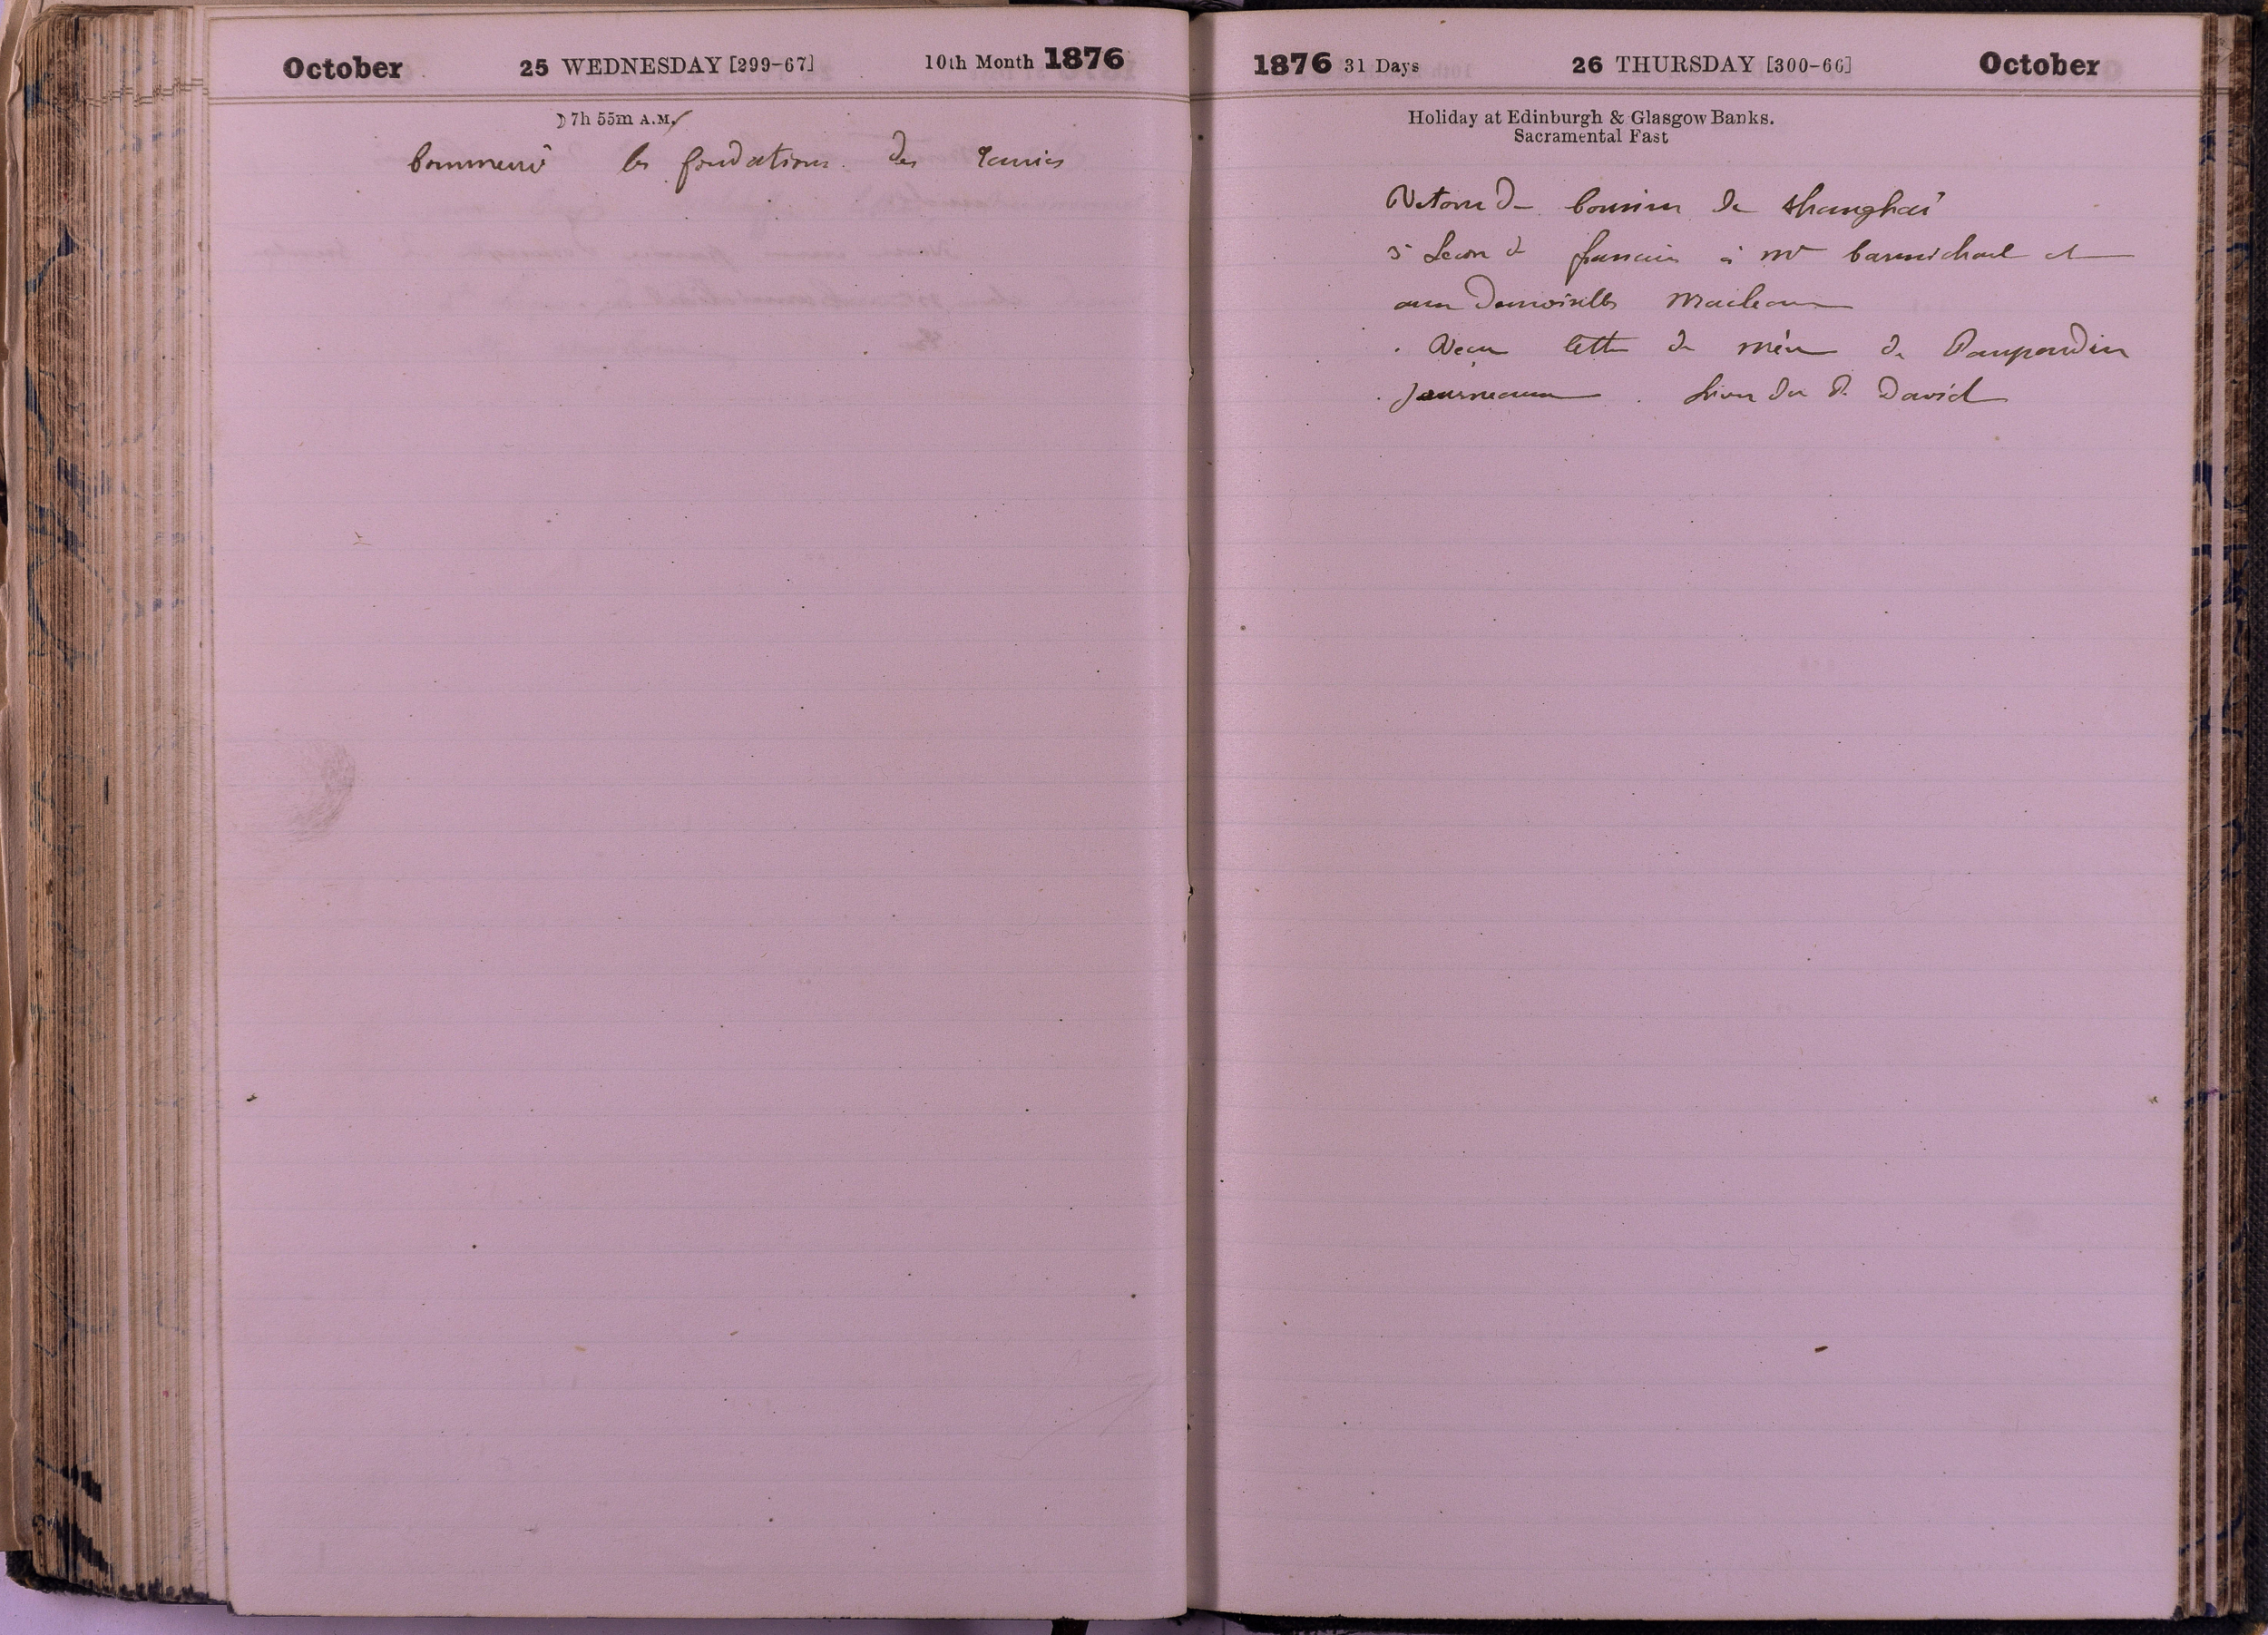 October 25 WEDNESDAY [299-67] 10th Month 1876
☽ 7h 55m A.M.
Commencé les fondations des
1876 31 Days 26 THURSDAY [300-66] October
Holiday at Edinburgh & Glasgow Banks.
Sacramental Fast
Retour du courrier de Shanghaï
Lecon de francais à Mr Carmichael et
aux Demoiselles Maclean
Recu lettre de mère de
journeaux. Livre du P. David